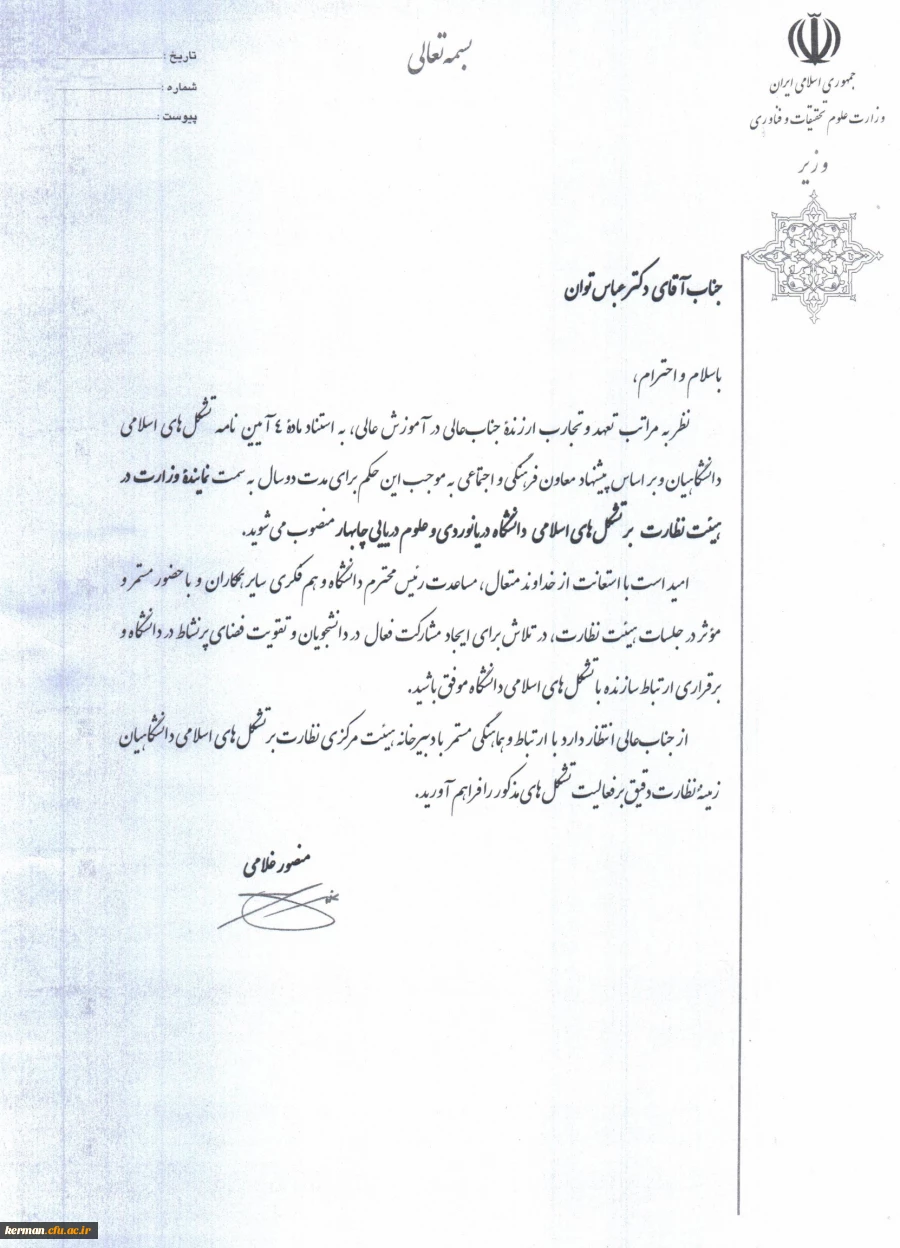 بسمه تعالی
جمهوری اسلامی ایران
وزارت علوم تحقیقات و فناوری
وزیر
تاریخ :
شماره :
پیوست :
جناب آقای دکتر عباس توان
باسلام و احترام،
نظر به مراتب تعهد و تجارب ارزندهٔ جناب‌عالی در آموزش عالی، به استناد مادهٔ ٤ آیین نامه تشکل های اسلامی
دانشگاهیان و بر اساس پیشنهاد معاون فرهنگی و اجتماعی به موجب این حکم برای مدت دو سال به سمت نمایندهٔ وزارت در
هیئت نظارت بر تشکل های اسلامی دانشگاه دریانوردی و علوم دریایی چابهار منصوب می شوید.
امید است با استعانت از خداوند متعال، مساعدت رئیس محترم دانشگاه و هم فکری سایر همکاران و با حضور مستمر و
مؤثر در جلسات هیئت نظارت، در تلاش برای ایجاد مشارکت فعال در دانشجویان و تقویت فضای پرنشاط در دانشگاه و
برقراری ارتباط سازنده با تشکل های اسلامی دانشگاه موفق باشید.
از جناب‌عالی انتظار دارد با ارتباط و هماهنگی مستمر با دبیرخانه هیئت مرکزی نظارت بر تشکل های اسلامی دانشگاهیان
زمینهٔ نظارت دقیق بر فعالیت تشکل های مذکور را فراهم آورید.
منصور غلامی
kerman.cfu.ac.ir